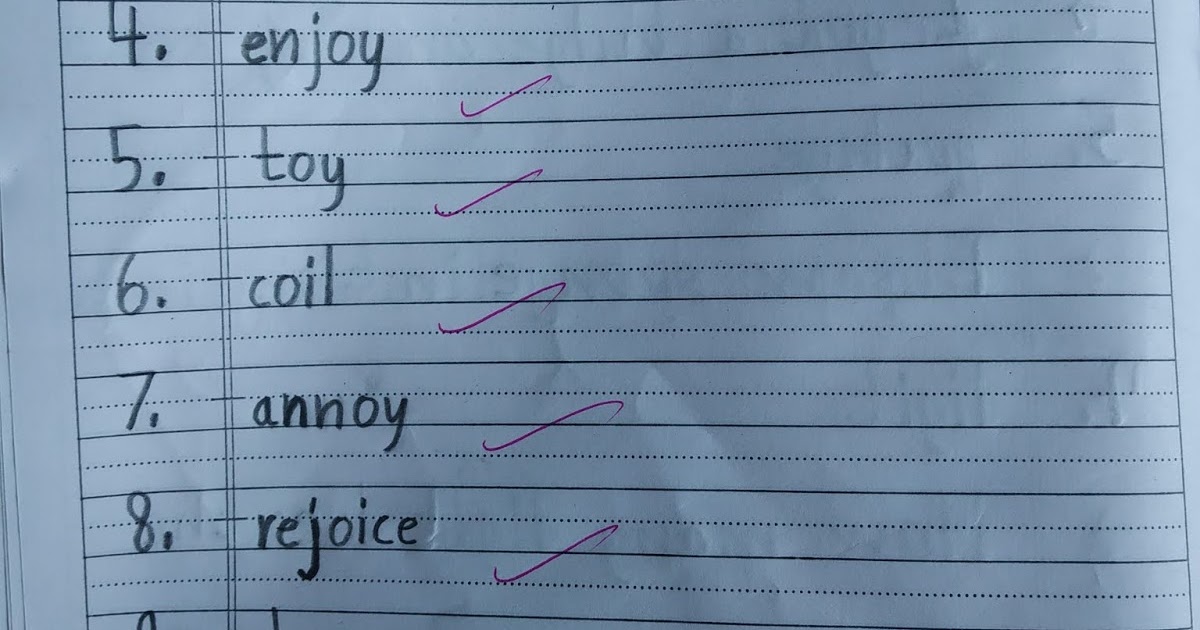 4. enjoy
5. toy
6. coil
7. annoy
8. rejoice